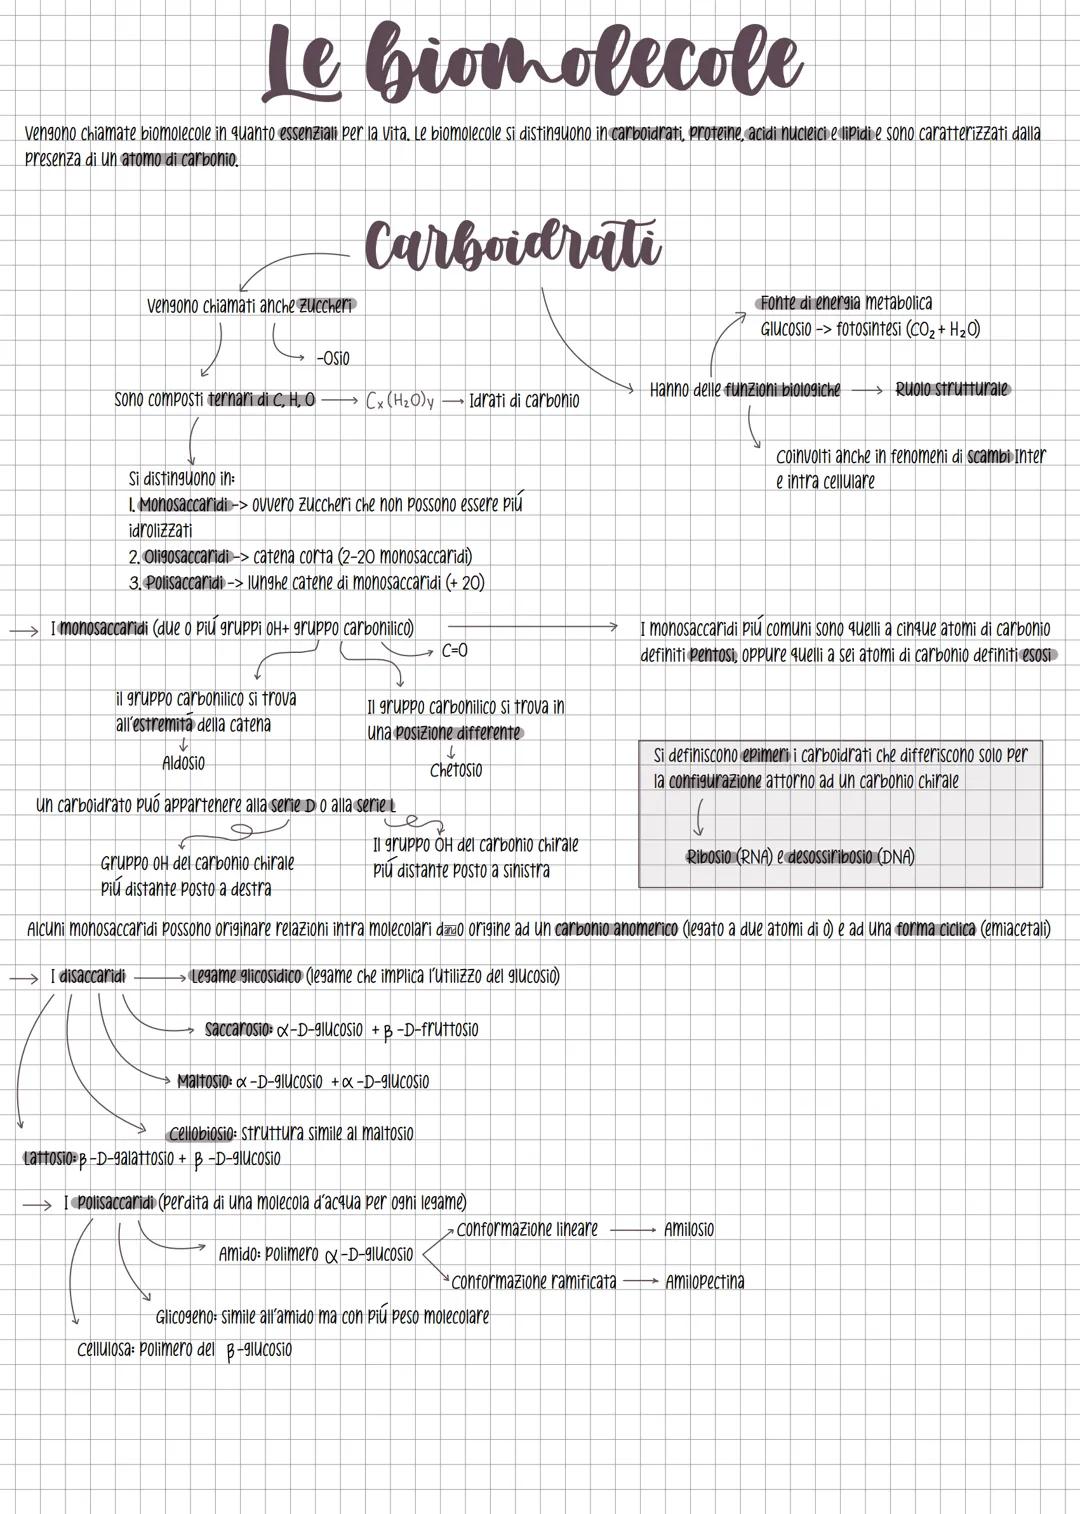 Le biomolecole
Vengono chiamate biomolecole in quanto essenziali per la vita. Le biomolecole si distinguono in carboidrati, proteine, acidi nucleici e lipidi e sono caratterizzati dalla
presenza di un atomo di carbonio.
Carboidrati
Vengono chiamati anche zuccheri
-osio
Sono composti ternari di C, H, O → Cx(H₂O)y → Idrati di carbonio
Fonte di energia metabolica
Glucosio -> fotosintesi (CO₂ + H₂O)
Hanno delle funzioni biologiche → Ruolo strutturale
Coinvolti anche in fenomeni di scambi Inter
e intra cellulare
Si distinguono in:
1. Monosaccaridi -> ovvero zuccheri che non possono essere piú
idrolizzati
2. Oligosaccaridi -> catena corta (2-20 monosaccaridi)
3. Polisaccaridi -> lunghe catene di monosaccaridi (+ 20)
→ I monosaccaridi (due o piú gruppi OH+ gruppo carbonilico)
C=O
I monosaccaridi piú comuni sono quelli a cinque atomi di carbonio
definiti pentosi, oppure quelli a sei atomi di carbonio definiti esosi
il gruppo carbonilico si trova
all'estremitá della catena
Aldosio
Il gruppo carbonilico si trova in
una posizione differente
Chetosio
Si definiscono epimeri i carboidrati che differiscono solo per
la configurazione attorno ad un carbonio chirale
Ribosio (RNA) e desossiribosio (DNA)
Un carboidrato puó appartenere alla serie D o alla serie L
Gruppo OH del carbonio chirale
piú distante posto a destra
Il gruppo OH del carbonio chirale
piú distante posto a sinistra
Alcuni monosaccaridi possono originare relazioni intra molecolari dando origine ad un carbonio anomerico (legato a due atomi di O) e ad una forma ciclica (emiacetali)
→ I disaccaridi → Legame glicosidico (legame che implica l'utilizzo del glucosio)
Saccarosio: α-D-glucosio + β-D-fruttosio
Maltosio: α-D-glucosio + α-D-glucosio
Cellobiosio: struttura simile al maltosio
Lattosio: β-D-galattosio + β-D-glucosio
→ I polisaccaridi (perdita di una molecola d'acqua per ogni legame)
Conformazione lineare → Amilosio
Amido: polimero α-D-glucosio
Conformazione ramificata → Amilopectina
Glicogeno: simile all'amido ma con piú peso molecolare
Cellulosa: polimero del β-glucosio